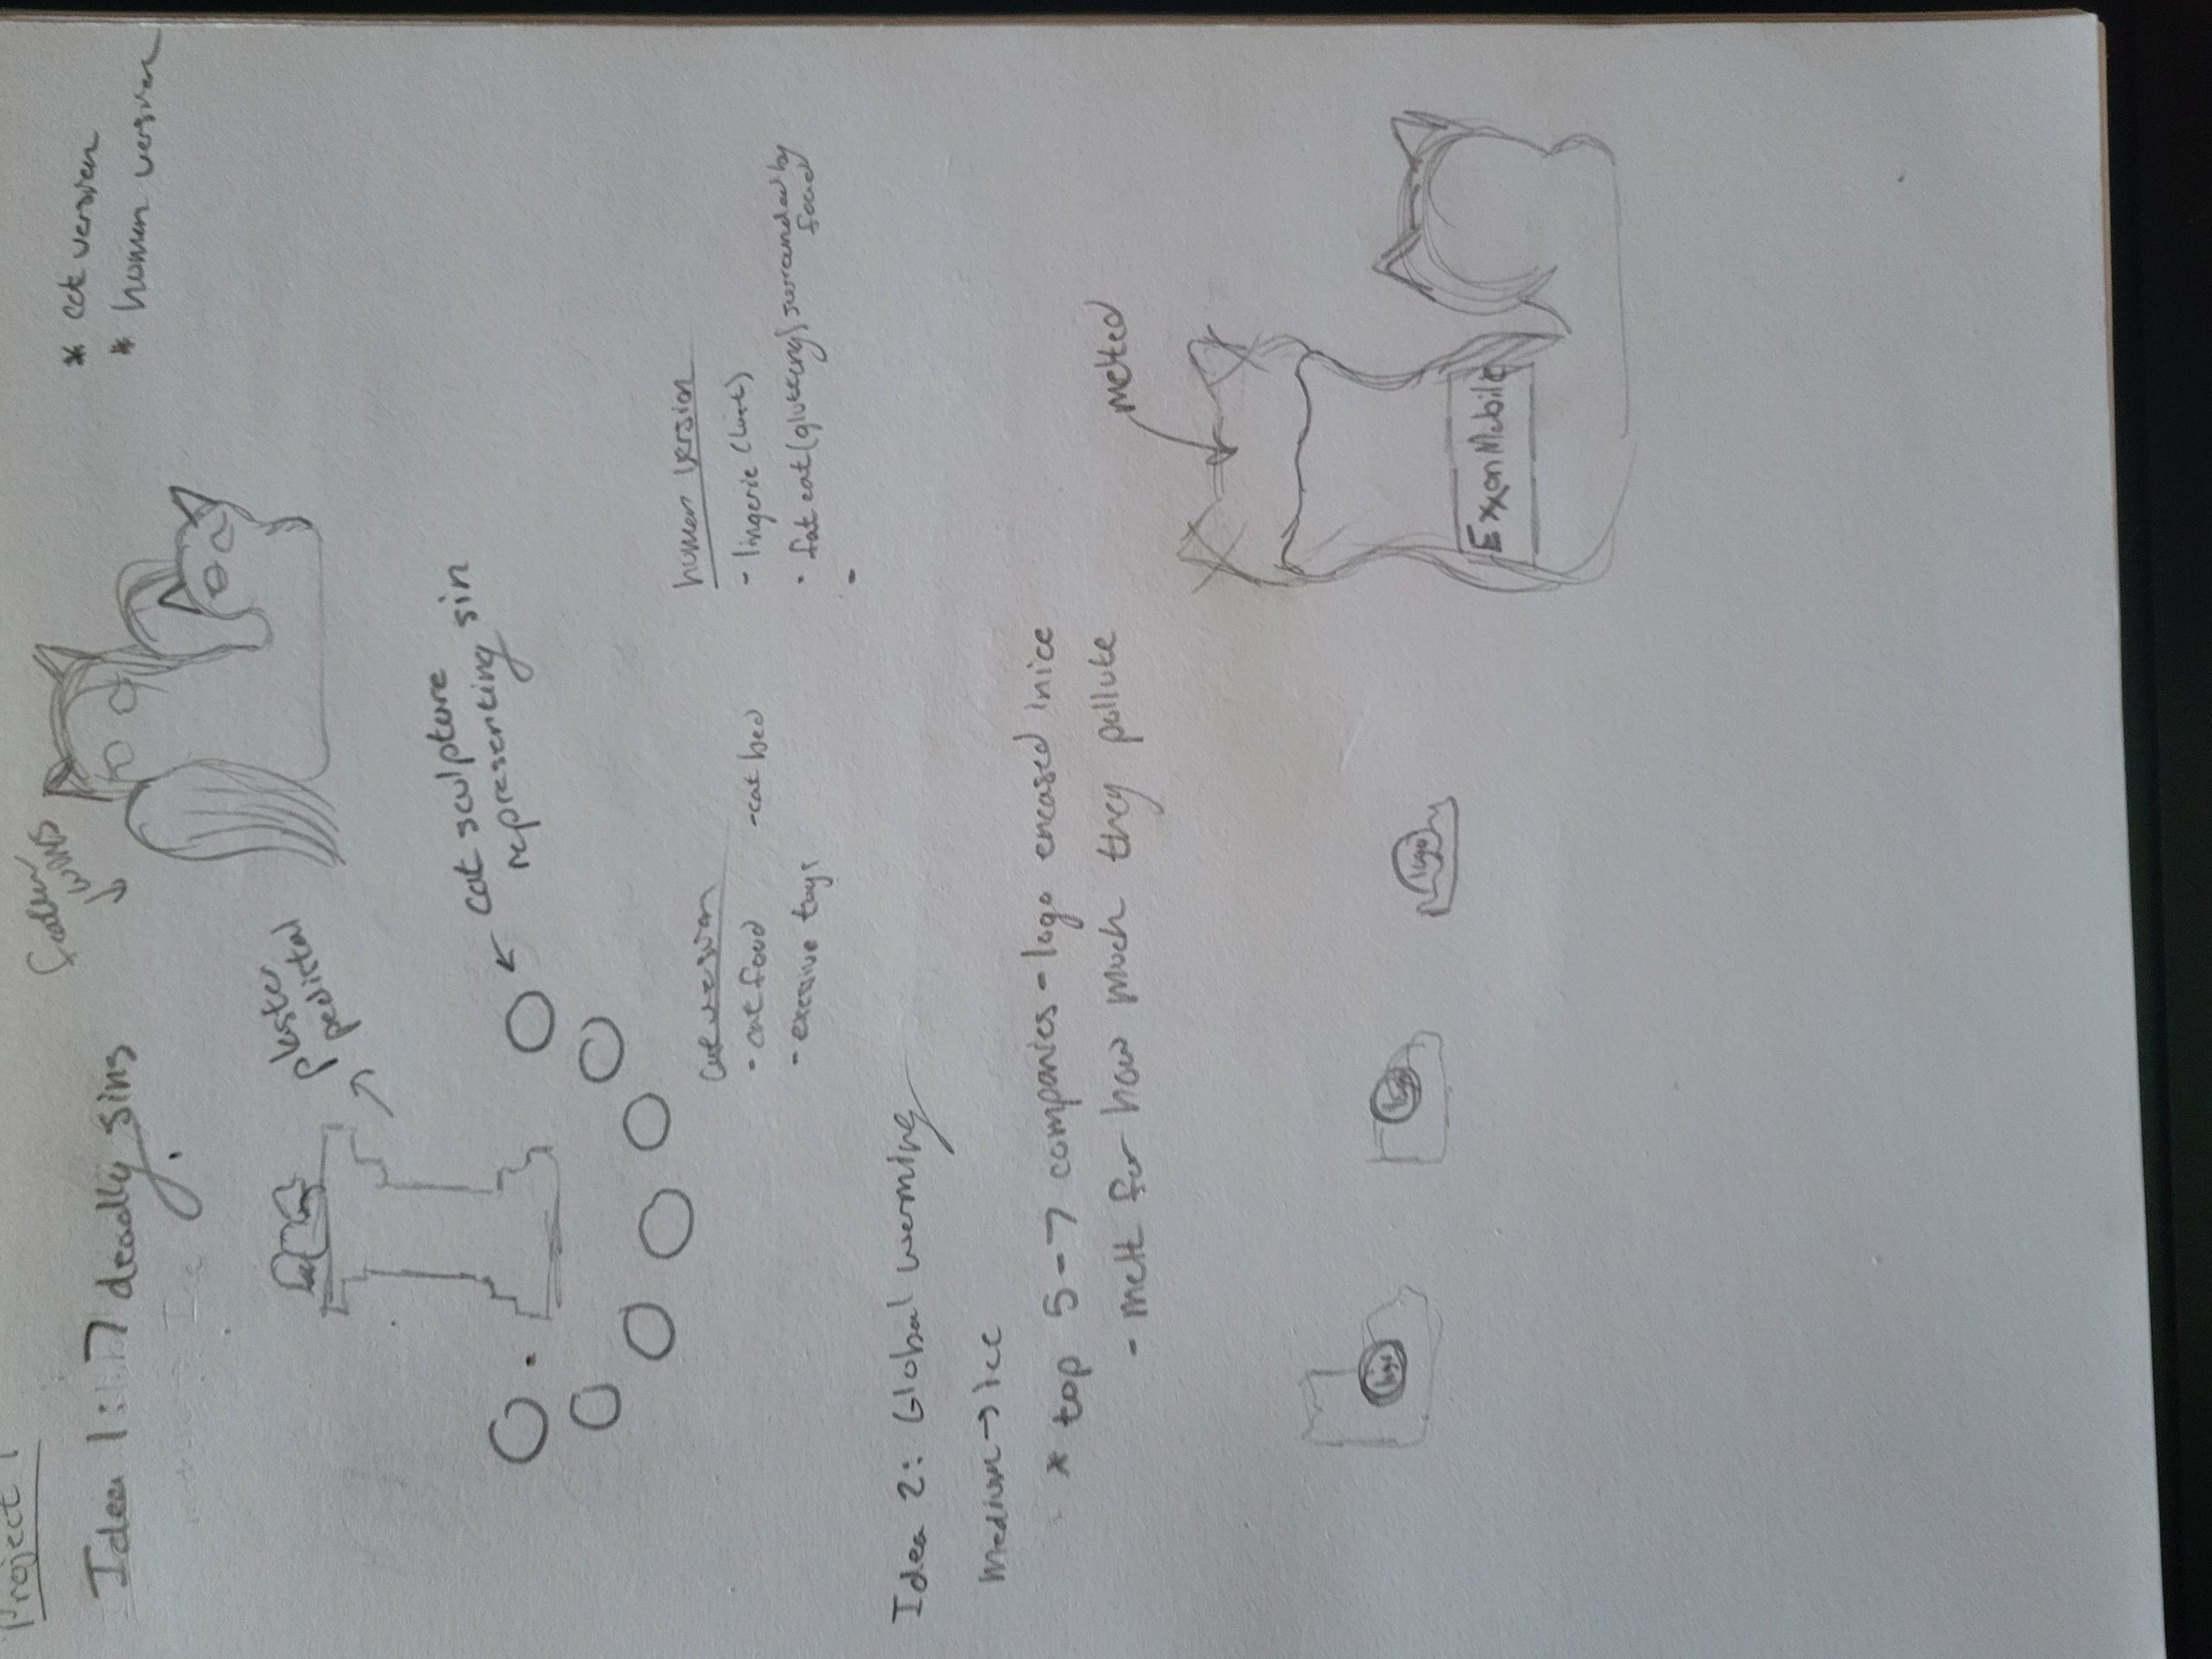 Project 1
Idea 1: 7 deadly sins
* cat version
* human version
plaster
cat sculpture
representing sin
cat version
- cat food
- cat bed
- toys
human version
- lingerie (lust)
- fat cat (gluttony) surrounded by
food
-
Idea 2: Global warming
medium → ice
* top 5-7 companies - logo encased in ice
- melt for how much they pollute
melted
ExxonMobile
logo
logo
logo